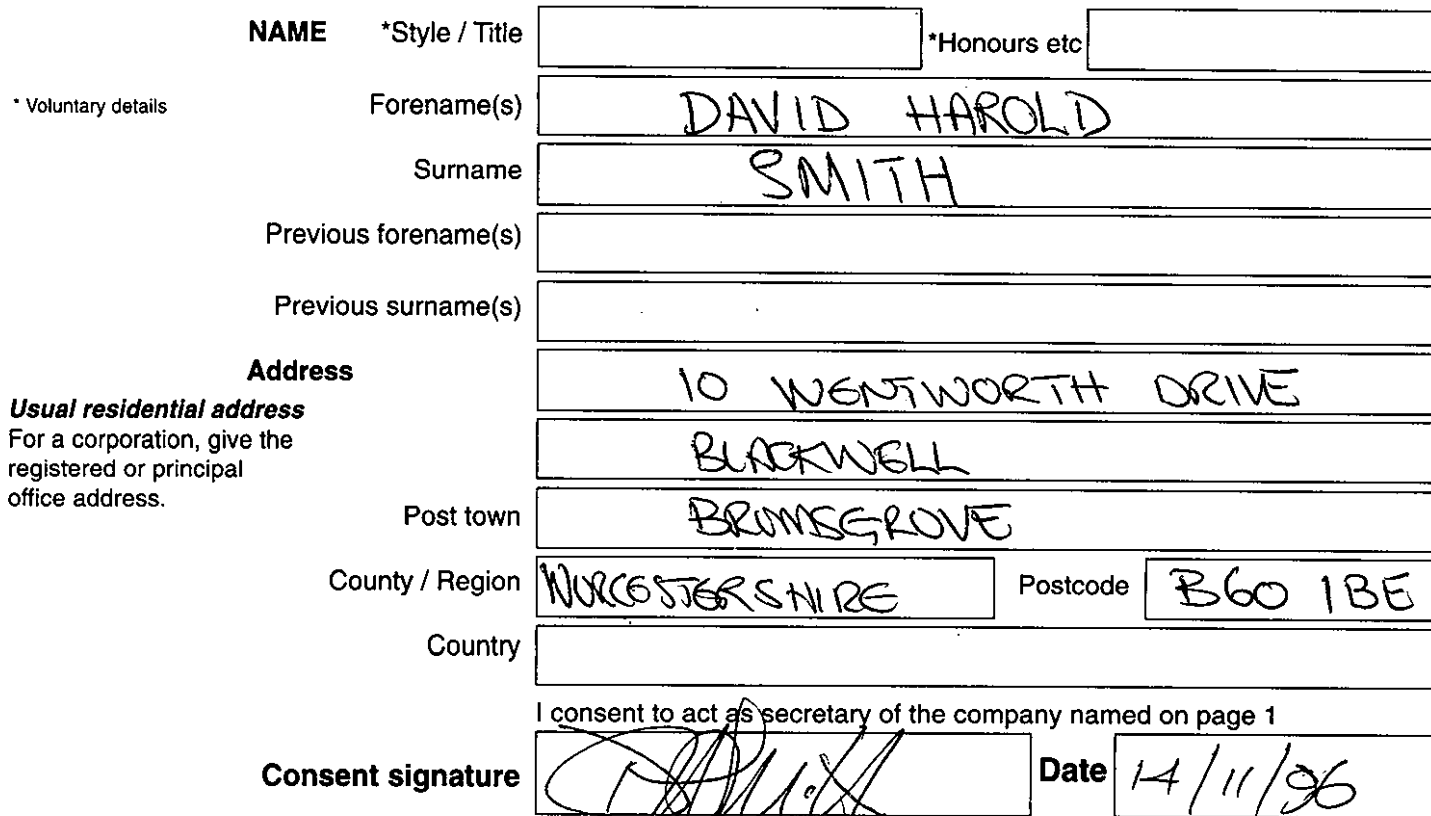 NAME *Style / Title *Honours etc
* Voluntary details Forename(s) DAVID HAROLD
Surname SMITH
Previous forename(s)
Previous surname(s)
Address 10 WENTWORTH DRIVE
Usual residential address
For a corporation, give the
registered or principal
office address.
BLACKWELL
Post town BROMSGROVE
County / Region WORCESTERSHIRE Postcode B60 1BE
Country
I consent to act as secretary of the company named on page 1
Consent signature Date 14/11/96